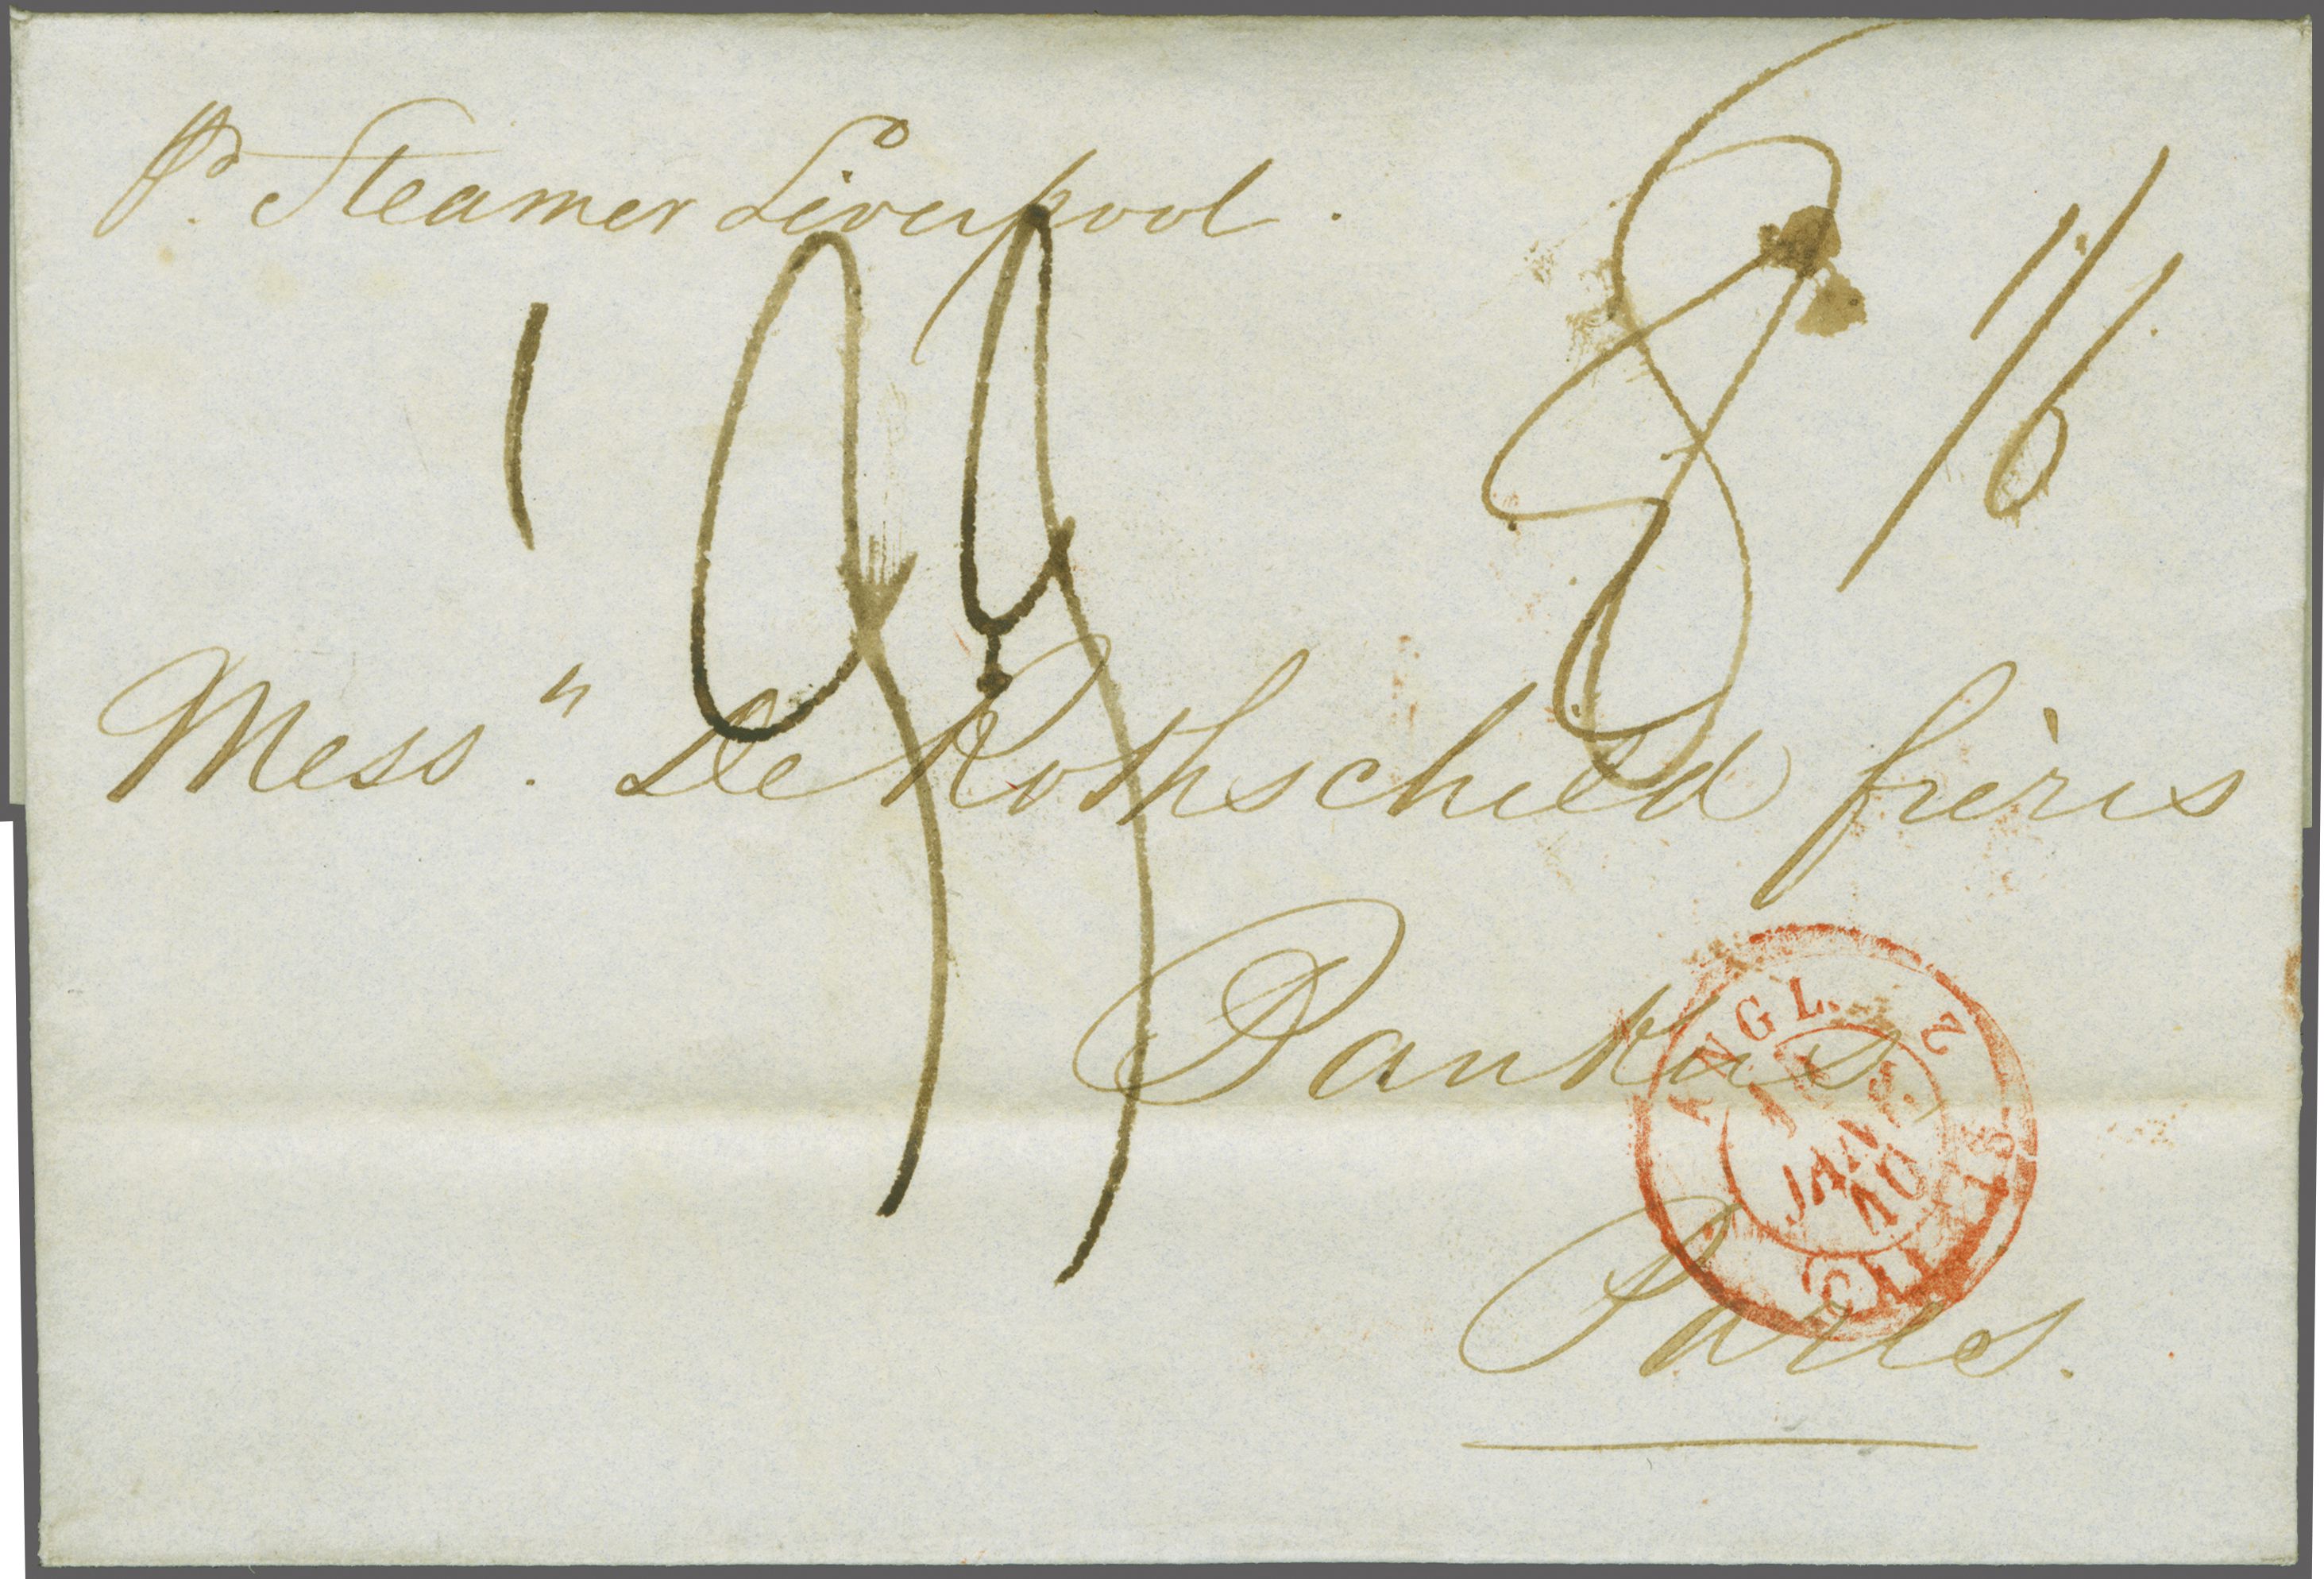 Pr. Steamer Liverpool.
1/6
99
Messrs. De Rothschild frères
Bankers
Paris.
ANGL. 2 CALAIS
JANV.
40